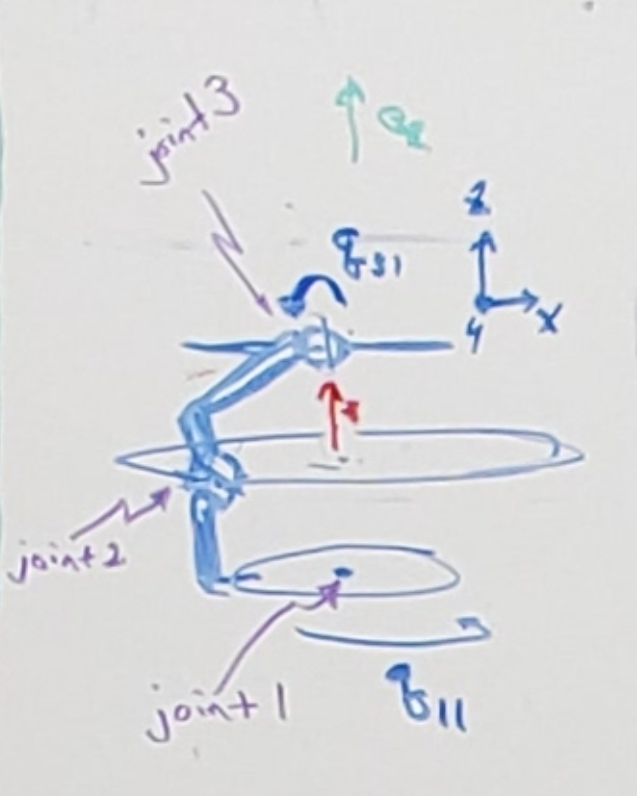 joint3
Z
q31
X
y
joint2
joint1
q11